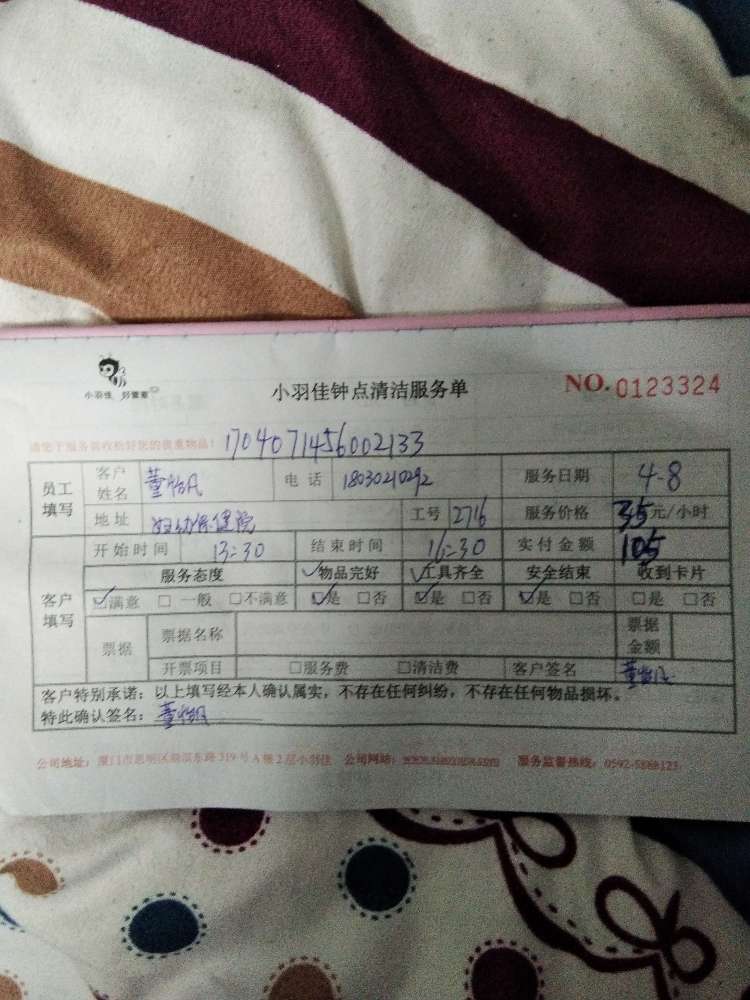 小羽佳 好管家
小羽佳钟点清洁服务单
NO. 0123324
请您于服务前收检好您的贵重物品！ 1704071456002133
员工填写 客户姓名 董怡凡 电话 18030210292 服务日期 4-8
地址 妇幼保健院 工号 2716 服务价格 35元/小时
开始时间 13:30 结束时间 16:30 实付金额 105
客户填写 服务态度 ✓物品完好 ✓工具齐全 安全结束 收到卡片
☑满意 □一般 □不满意 ☑是 □否 ☑是 □否 ☑是 □否 □是 □否
票据 票据名称 票据金额
开票项目 □服务费 □清洁费 客户签名 董怡凡
客户特别承诺：以上填写经本人确认属实，不存在任何纠纷，不存在任何物品损坏。
特此确认签名：董怡凡
公司地址：厦门市思明区 319号A梯2层小羽佳 公司网站： 服务监督热线：0592-5888123